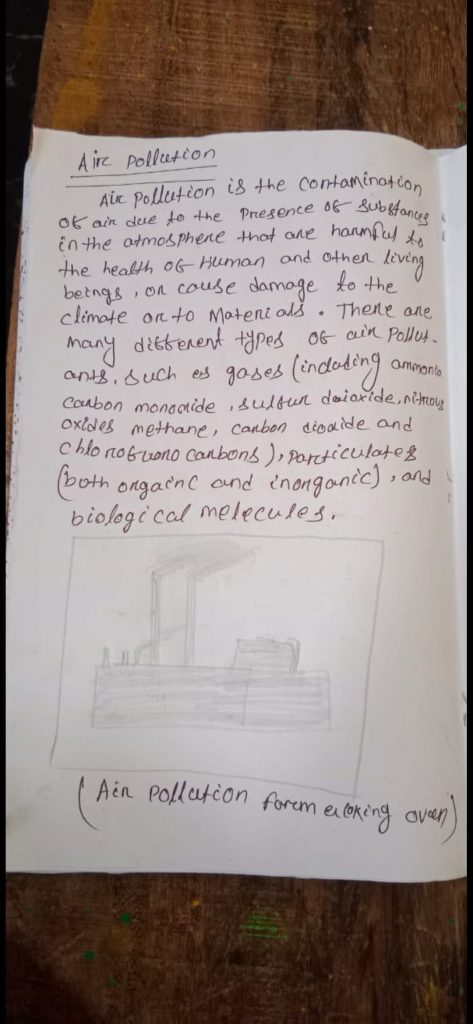 Air Pollution
Air Pollution is the contamination
of air due to the Presence of Substances
in the atmosphere that are harmful to
the health of Human and other living
beings, or cause damage to the
climate or to Materials. There are
many different types of air Pollut-
ants, Such as gases (including ammonia
Carbon monoxide, sulfur daioxide, nitrous
oxides methane, carbon dioxide and
Chlorofluoro carbons), particulates
(both orgainc and inorganic), and
biological melecules.
(Air pollution form cooking oven)